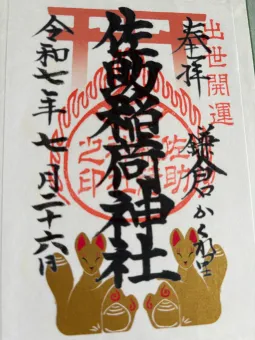 出世開運
奉拝
鎌倉かくれ里
佐助稲荷神社
令和七年七月二十六日